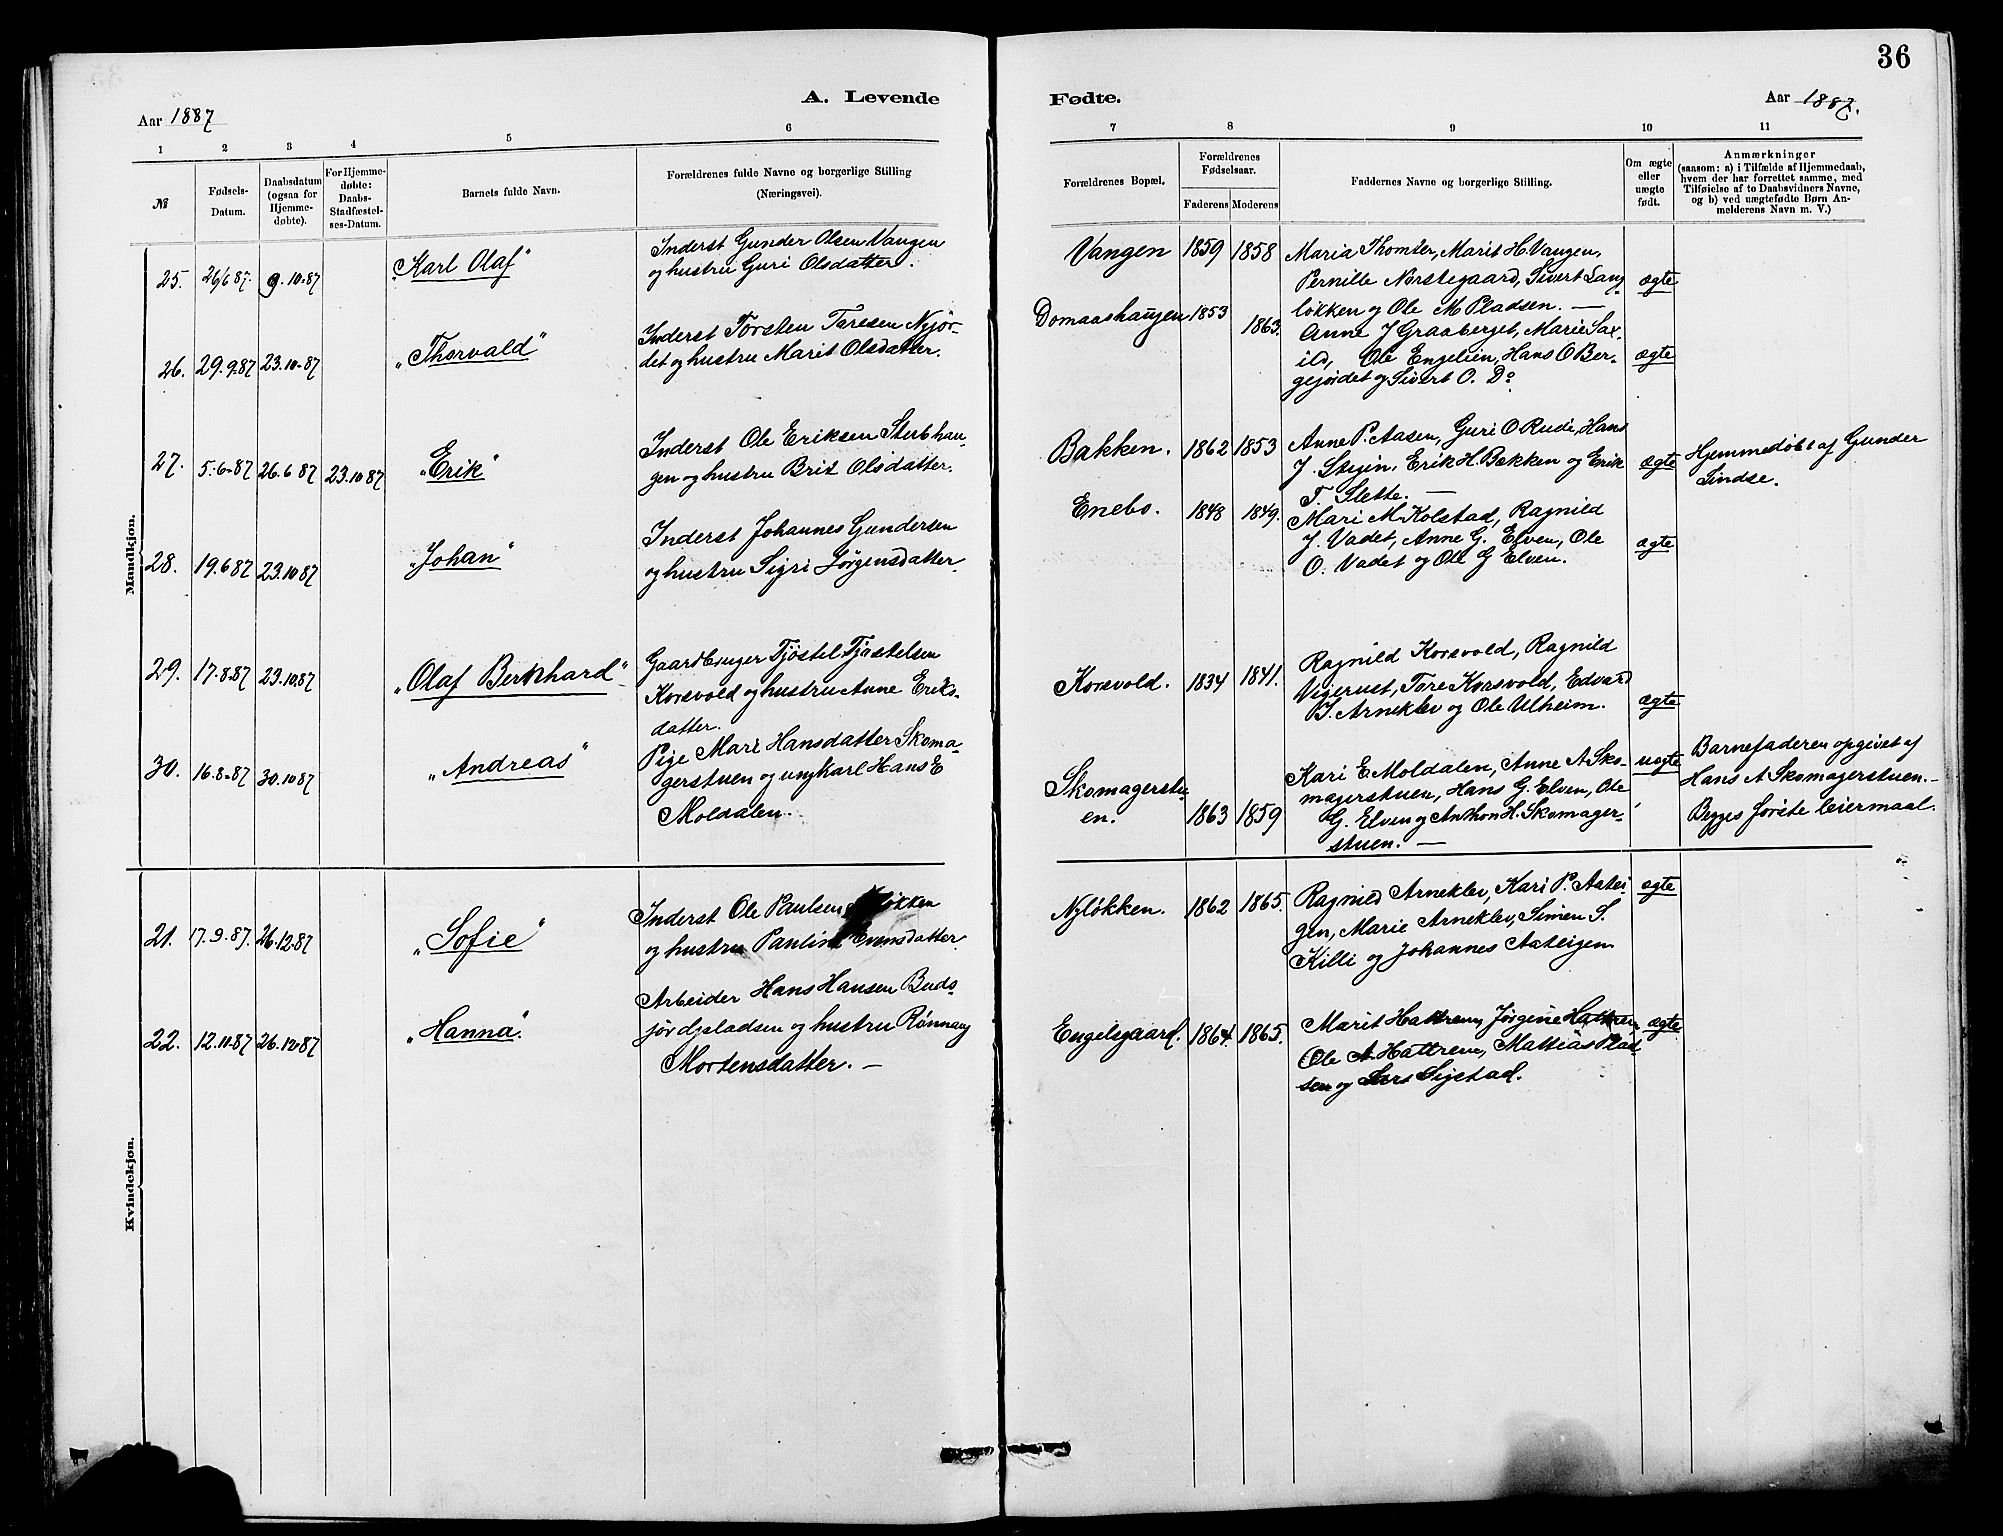 36
A. Levende
Fødte.
Aar 1887
Aar 1887.
1 2 3 4 5 6 7 8 9 10 11
№
Fødsels-
Datum.
Daabsdatum
(ogsaa for
Hjemme-
døbte).
For Hjemme-
døbte:
Daabs-
Stadfæstel-
ses-Datum.
Barnets fulde Navn.
Forældrenes fulde Navne og borgerlige Stilling
(Næringsvei).
Forældrenes Bopæl.
Forældrenes
Fødselsaar.
Faderens Moderens
Faddernes Navne og borgerlige Stilling.
Om ægte
eller
uægte
født.
Anmærkninger
(saasom: a) i Tilfælde af Hjemmedaab,
hvem der har forrettet samme, med
Tilføielse af to Daabsvidners Navne,
og b) ved uægtefødte Børn An-
melderens Navn m. V.)
Mandkjøn.
25. 26/6 87. 9.10.87 "Karl Olaf"
Inderst Gunder Olsen Vangen
og hustru Guri Olsdatter.
Vangen 1859 1858
Maria Thomter, Marit H. Vangen,
Pernille Norstegaard, Sivert Lang-
løkken og Ole M Pladsen. —
ægte
26. 29.9.87 23.10.87 "Thorvald"
Inderst Torsten Taresen Nyjør-
det og hustru Marit Olsdatter.
Domaashaugen 1853 1863.
Anne J Graaberget, Marie Sax-
ild, Ole Engelien, Hans O Ber-
gejordet og Sivert O. Do
ægte
27. 5.6.87 26.6 87 23.10 87 "Erik"
Inderst Ole Eriksen Sterbhau-
gen og hustru Brit Olsdatter.
Bakken. 1862 1853
Anne P. Aasen, Guri O. Rude, Hans
J. Stigin, Erik H. Bakken og Erik
T. Slette. —
ægte
Hjemmedøbt af Gunder
Lindse.
28. 19.6 87 23.10 87 "Johan"
Inderst Johannes Gundersen
og hustru Sigri Jørgensdatter.
Enebo. 1848 1849.
Mari M. Kolstad, Ragnild
J. Vadet, Anne G. Elven, Ole
O. Vadet og Ole G Elven.
ægte
29. 17.8.87 23.10.87 "Olaf Bernhard"
Gaardbruger Tjøstel Tjøstelsen
Korsvold og hustru Anne Eriks-
datter.
Korsvold. 1834 1841.
Ragnild Korsvold, Ragnild
Vigerust, Tore Korsvold, Edvard
J. Arneklev og Ole Ulheim.
ægte
30. 16.8.87 30.10 87 "Andreas"
Pige Mari Hansdatter Skoma-
gerstuen og ungkarl Hans E
Moldalen.
Skomagerstu-
en. 1863 1859
Kari E. Moldalen, Anne A Sko-
magerstuen, Hans G. Elven, Ole
G. Elven og Anthon H. Skomager-
stuen. —
uægte
Barnefaderen opgivet af
Hans A Skomagerstuen. —
Begges første leiermaal.
Kvindekjøn.
21. 17.9.87. 26.12.87 "Sofie"
Inderst Ole Paulsen
og hustru Pauline Ennsdatter.
Nyløkken. 1862 1865.
Ragnild Arneklev, Kari P. Aatei-
gen, Marie Arneklev, Simen S.
Killi og Johannes Aateigen
ægte
22. 12.11.87 26.12.87 "Hanna".
Arbeider Hans Hansen Buds-
jordpladsen og hustru Rønnaug
Mortensdatter. —
Engelsgaard. 1864. 1865.
Marit Hattrem, Jørgine Hattrem
Ole A Hattrem, Mattias Plad-
sen og Lars Sigstad.
ægte